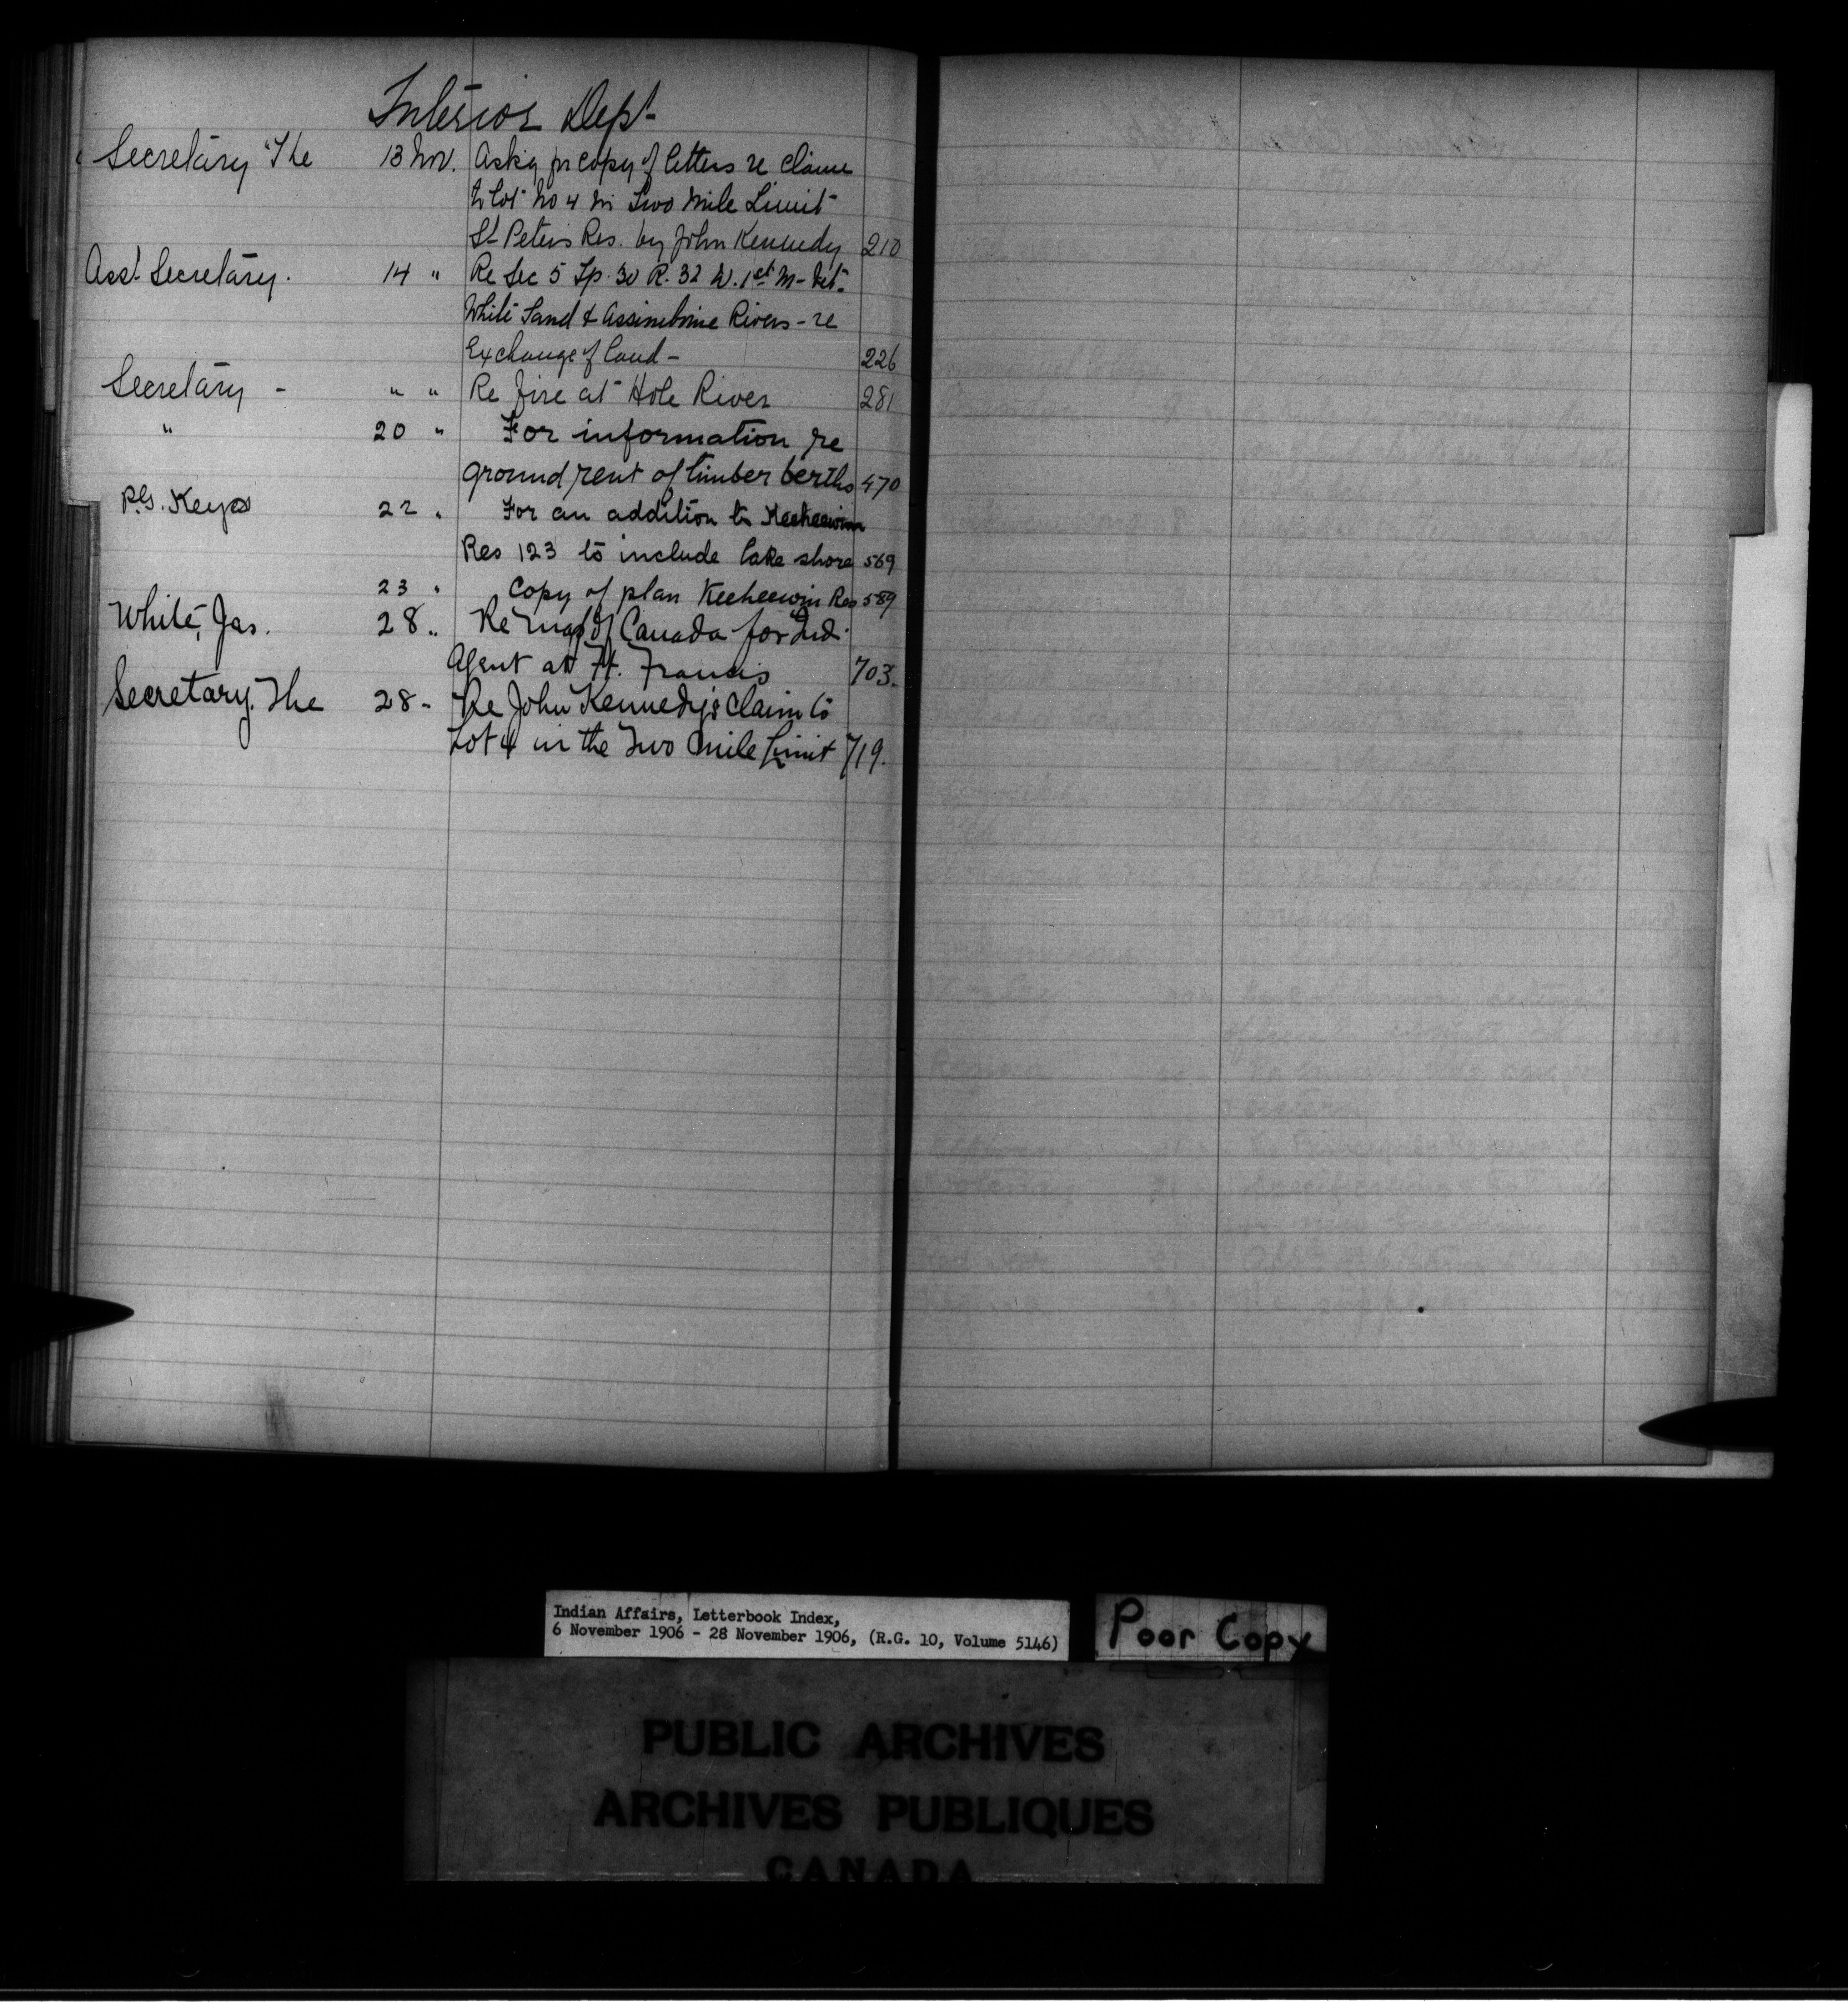 Interior Dept
Secretary The 13 Nov. Askg for copy of letters re claim
to Lot No 4 in Two Mile Limit
St Peters Res. by John Kennedy 210
Asst Secretary. 14 " Re Sec 5 Tp. 30 R. 32 W. 1st M-
White Sand & Assiniboine Rivers - re
Exchange of land - 226
Secretary - " " Re fire at Hole River 281
" 20 " For information re
ground rent of timber berths 470
P.G. Keyes 22 " For an addition to Keeheewin
Res 123 to include lake shore 569
23 " Copy of plan Keeheewin Res 589
White, Jas. 28 " Re Map of Canada for Ind.
Agent at Ft. Francis 703.
Secretary. The 28 - Re John Kennedy's Claim to
Lot 4 in the Two Mile Limit 719.
Indian Affairs, Letterbook Index,
6 November 1906 - 28 November 1906, (R.G. 10, Volume 5146)
Poor Copy
PUBLIC ARCHIVES
ARCHIVES PUBLIQUES
CANADA